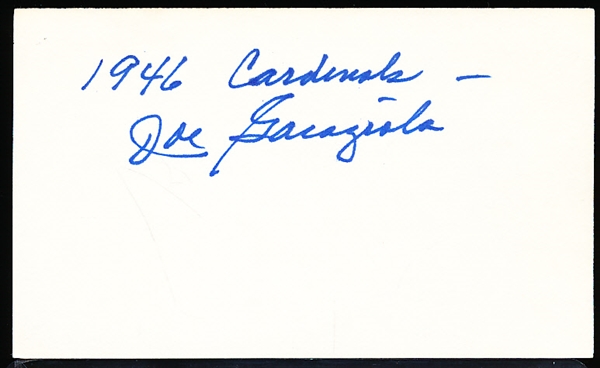 1946 Cardinals —
Joe Garagiola